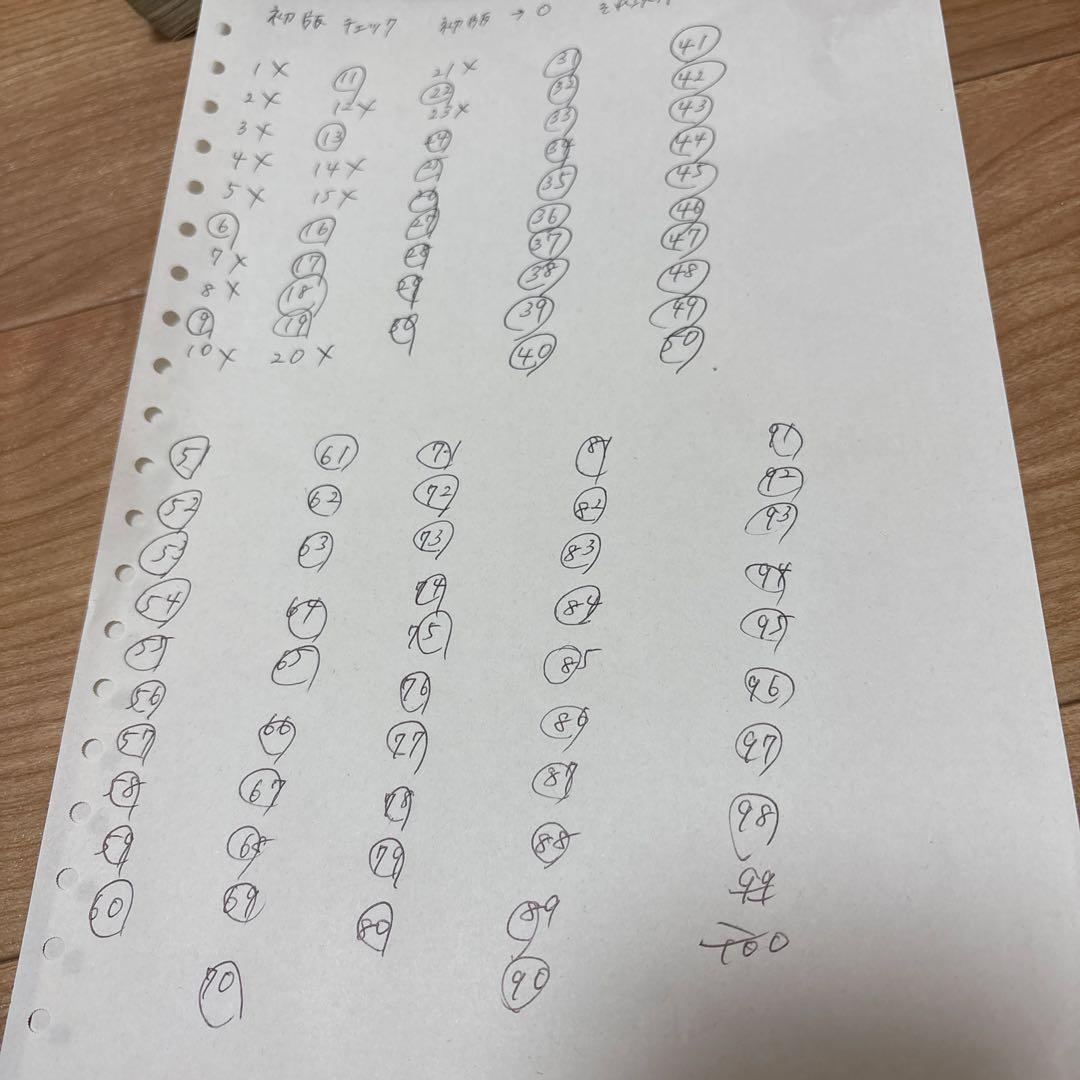 初版 チェック 初版 → ○
1 × ⑪ 21 × ㉛ ㊶
2 × 12 × ㉒ ㉜ ㊷
3 × ⑬ 23 × ㉝ ㊸
4 × 14 × ㉔ ㉞ ㊹
5 × 15 × ㉕ ㉟ ㊺
⑥ ⑯ ㉖ ㊱ ㊻
7 × ⑰ ㉗ ㊲ ㊼
8 × ⑱ ㉘ ㊳ ㊽
⑨ ⑲ ㉙ ㊴ ㊾
10 × 20 × ㉚ ㊵ ㊿
51 61 71 81 91
52 62 72 82 92
53 63 73 83 93
54 64 74 84 94
55 65 75 85 95
56 66 76 86 96
57 67 77 87 97
58 68 78 88 98
59 69 79 89 99
60 70 80 90 100